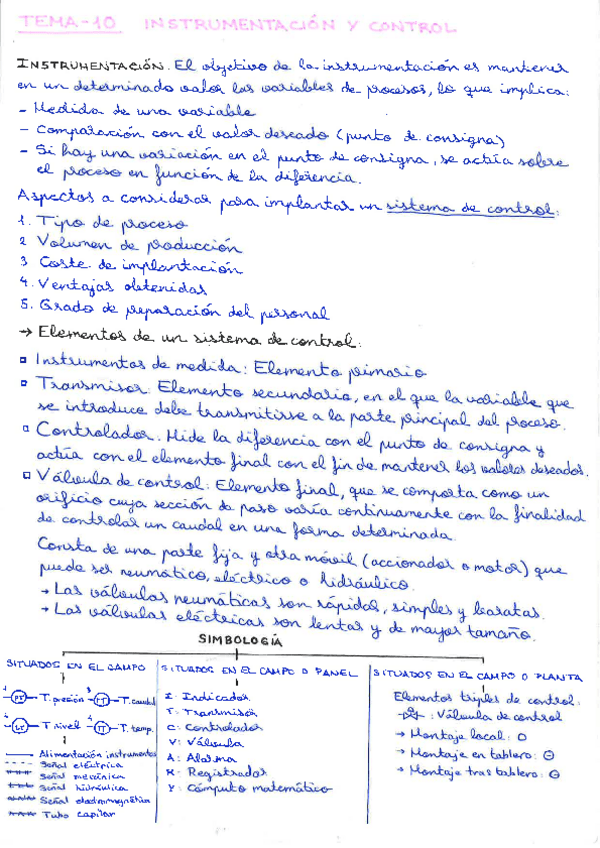 TEMA-10 INSTRUMENTACIÓN Y CONTROL
INSTRUMENTACIÓN. El objetivo de la instrumentación es mantener
en un determinado valor las variables de procesos, lo que implica:
- Medida de una variable
- Comparación con el valor deseado (punto de consigna)
- Si hay una variación en el punto de consigna, se actúa sobre
el proceso en función de la diferencia.
Aspectos a considerar para implantar un sistema de control:
1. Tipo de proceso
2 Volumen de producción
3 Coste de implantación
4. Ventajas obtenidas
5. Grado de preparación del personal
→ Elementos de un sistema de control:
▫ Instrumentos de medida: Elemento primario
▫ Transmisor. Elemento secundario, en el que la variable que
se introduce debe transmitirse a la parte principal del proceso.
▫ Controlador. Mide la diferencia con el punto de consigna y
actúa con el elemento final con el fin de mantener los valores deseados.
▫ Válvula de control: Elemento final, que se comporta como un
orificio cuya sección de paso varía continuamente con la finalidad
de controlar un caudal en una forma determinada.
Consta de una parte fija y otra móvil (accionador o motor) que
puede ser neumático, eléctrico o hidráulico.
→ Las válvulas neumáticas son rápidas, simples y baratas.
→ Las válvulas eléctricas son lentas y de mayor tamaño.
SIMBOLOGÍA
SITUADOS EN EL CAMPO
PT T. presión FT T. caudal
LT T nivel TT T. temp.
Alimentación instrumentos
Señal eléctrica
Señal mecánica
Señal hidráulica
Señal electromagnética
Tubo capilar
SITUADOS EN EL CAMPO O PANEL
I: Indicador
T: Transmisor
C: Controlador
V: Válvula
A: Alarma
R: Registrador
Y: Cómputo matemático
SITUADOS EN EL CAMPO O PLANTA
Elementos triples de control:
: Válvula de control
→ Montaje local: O
→ Montaje en tablero: ⊖
→ Montaje tras tablero: ⊖